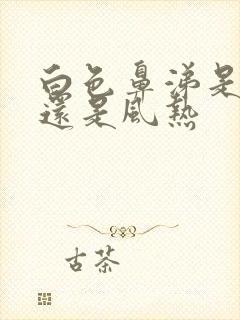 白色鼻涕是
還是風熱
古茶